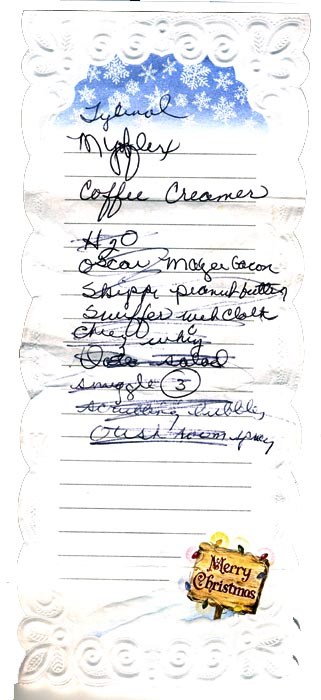 Tylenol
Coffee Creamer
H2O
Oscar Mayer bacon
Skippy peanut butter
Swiffer wet cloth
Cheez whiz
salad
snuggle 3
scrubbing bubbles
room spray
Merry
Christmas